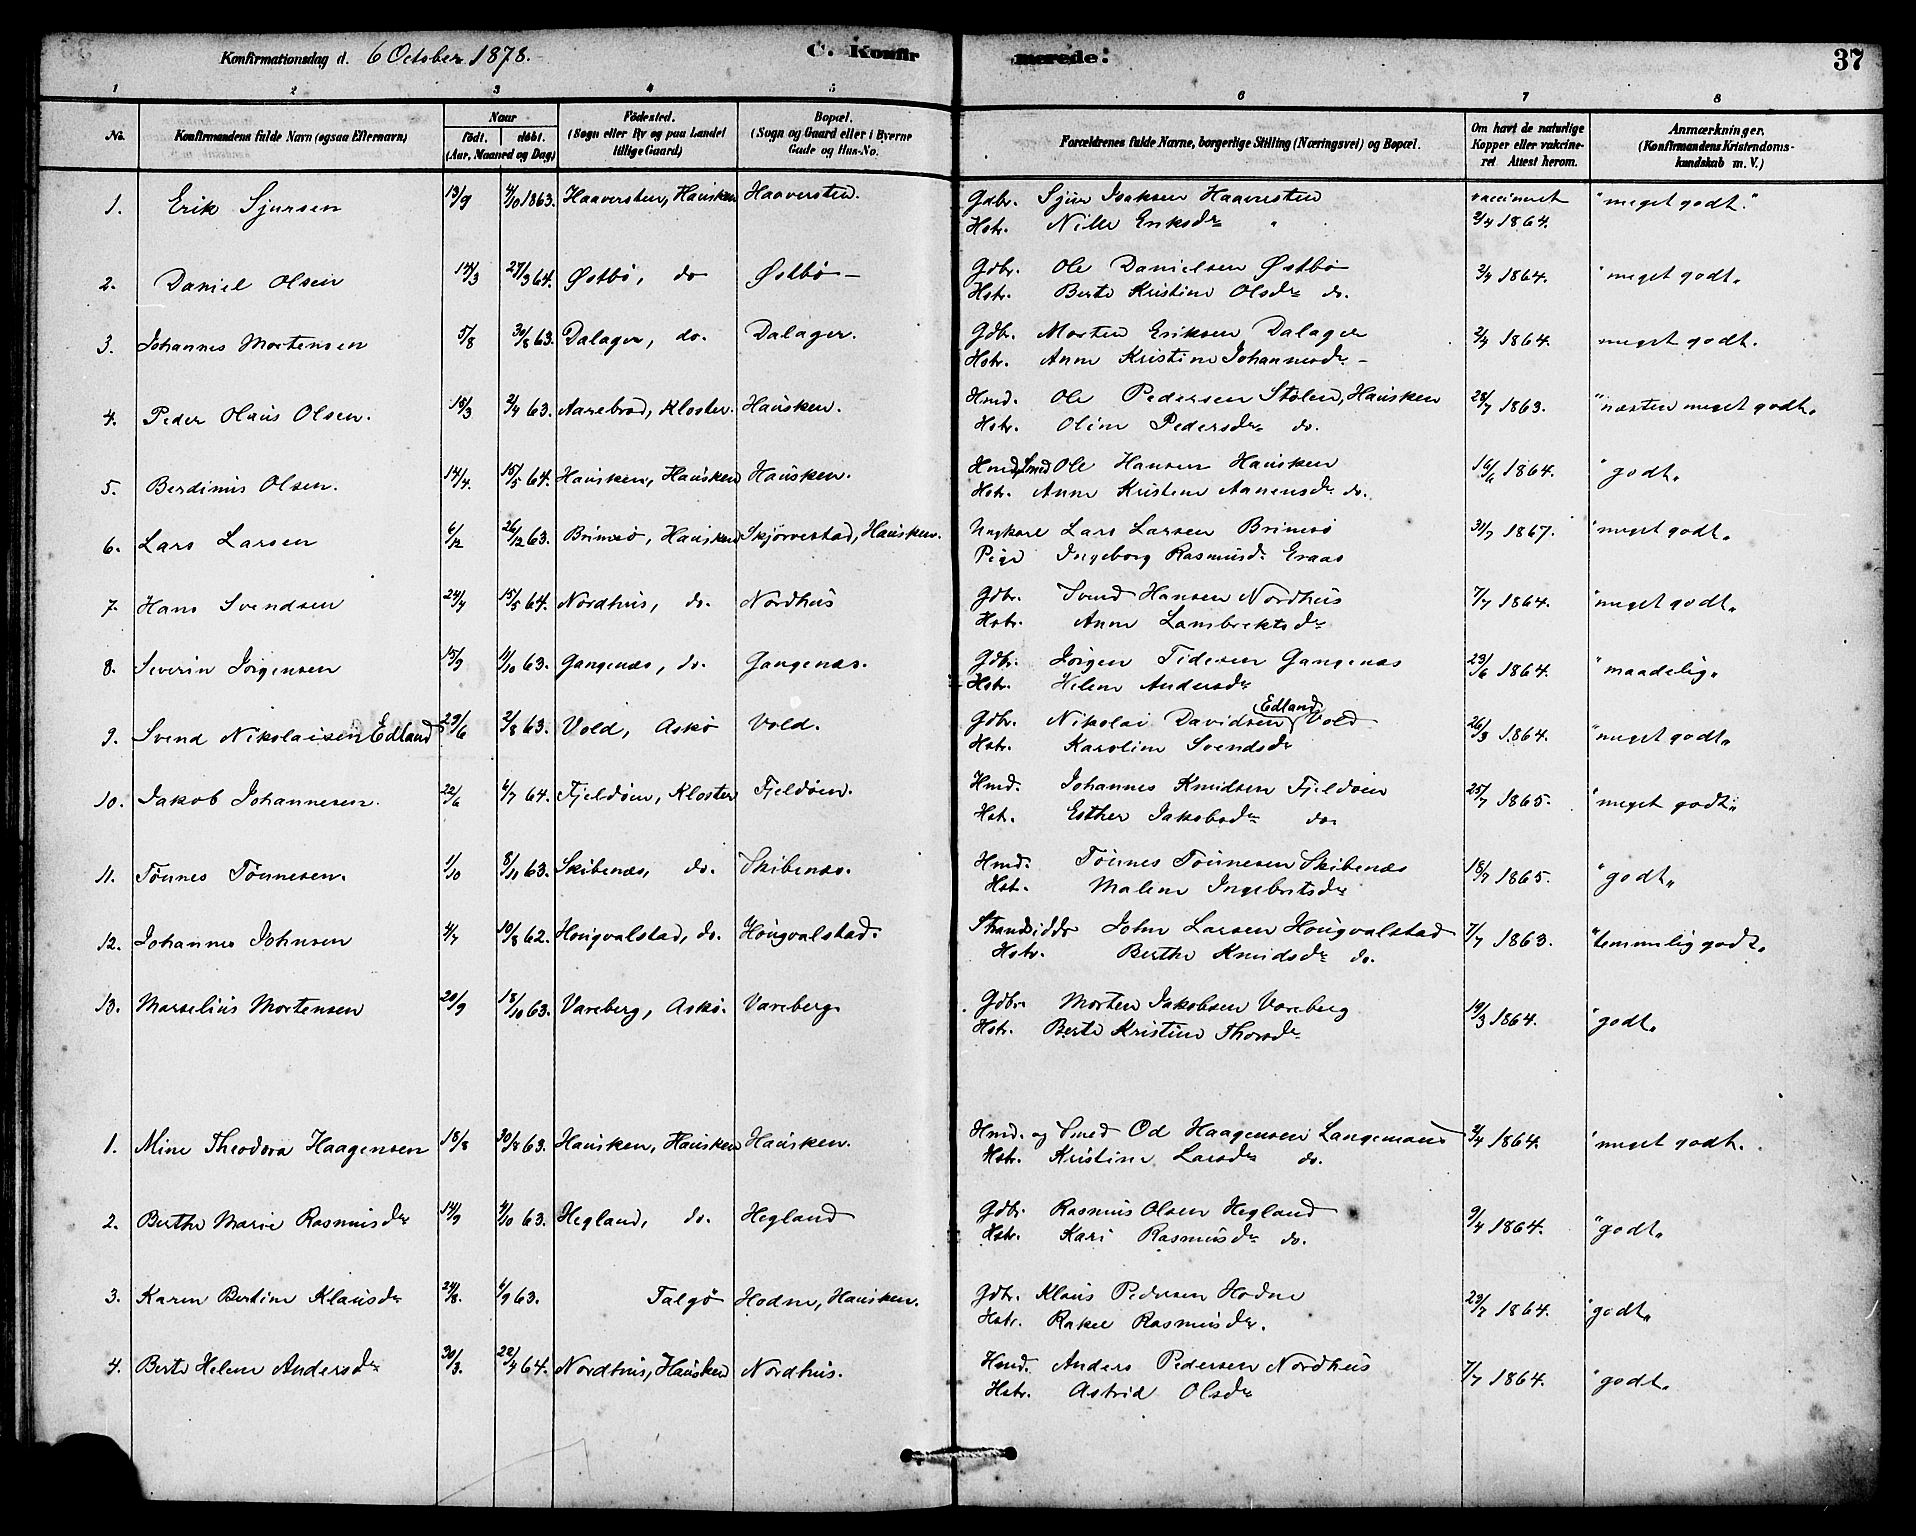 Konfirmationsdag d. 6 October 1878.
C. Konfirmerede:
37
1 2 3 4 5 6 7 8
No.
Konfirmandens fulde Navn (ogsaa Efternavn)
Naar
födt. döbt.
(Aar, Maaned og Dag)
Födested.
(Sogn eller By og paa Landet
tillige Gaard)
Bopæl.
(Sogn og Gaard eller i Byerne
Gade og Hus-No.
Forældrenes fulde Navne, borgerlige Stilling (Næringsvei) og Bopæl.
Om havt de naturlige
Kopper eller vakcineret
Attest herom.
Anmærkninger.
(Konfirmandens Kristendomskundskab m. V.)
1. Erik Sjursen 13/9 4/10 1863. Haaversten, Hausken Haaversten. Gdbr. Sjur Isaksen Haaversten vaccineret "meget godt."
Hstr. Nille Eriksdr " 2/4 1864.
2. Daniel Olsen 14/3 27/3 64. Østbö, do Østbö Gdbr. Ole Danielsen Østbö 2/4 1864. "meget godt"
Hstr. Berte Kristine Olsdr do.
3. Johannes Mortensen 5/8 30/8 63. Dalager, do. Dalager. Gdbr. Morten Eriksen Dalager 2/4 1864. meget godt.
Hstr. Anne Kristine Johannesdr -
4. Peder Olaus Olsen. 15/3 2/4 63. Aarebrod, Kloster. Hausken. Hmd. Ole Pedersen Stölen, Hausken 28/7 1863. "næsten meget godt"
Hstr. Oline Pedersdr do.
5. Berdinus Olsen. 14/4. 15/5 64. Hausken, Hausken Hausken. Hmd, Smed Ole Hansen Hausken 16/6 1864. "godt"
Hstr. Anne Kristine Aanensdr do.
6. Lars Larsen 6/12 26/12 63. Brimsö, Hausken Skjörvestad, Hausken. Ungkarl Lars Larsen Brimsö 31/7 1867. "meget godt"
Pige Ingeborg Rasmusdr Eraas
7. Hans Svendsen 24/4 15/5 64. Nordhus, do. Nordhus Gdbr. Svend Hansen Nordhus 7/7 1864. "meget godt"
Hstr. Anne Lambrektsdr
8. Severin Jörgensen 15/9 11/10 63. Gangenæs, do. Gangenæs. Gdbr. Jörgen Tidesen Gangenæs 23/6 1864. "maadelig"
Hstr. Helene Andersdr
9. Svend Nikolaisen Edland 29/6 2/8 63. Vold, Askö Vold. Gdbr. Nikolai Davidsen Edland Vold 26/3 1864. "meget godt"
Hstr. Karoline Svendsdr
10. Jakob Johannesen. 22/6 4/7 64. Fjeldöen, Kloster Fjeldöen. Hmd. Johannes Knudsen Fjeldöen 25/7 1865. "meget godt"
Hst. Esther Jakobsdr do.
11. Tönnes Tönnesen. 1/10 8/11 63. Skibenæs, do. Skibenæs. Hmd. Tönnes Tönnesen Skibenæs 18/7 1865. "godt"
Hst. Malene Ingebritsdr
12. Johannes Johnsen 4/7 10/8 62. Hougvalstad, do. Hougvalstad. Strandsidder John Larsen Hougvalstad 7/7 1863. "temmelig godt"
Hstr. Berthe Knudsdr do.
13. Marselius Mortensen 20/9 18/10 63. Vareberg, Askö. Vareberg Gdbr. Morten Jakobsen Vareberg 19/3 1864. "godt"
Hstr. Berte Kristine Thorsdr
1. Mine Theodora Haagensen 18/8 30/8 63. Hausken, Hausken Hausken. Hmd. og Smed Od Haagensen Langemans 2/4 1864. "meget godt.
Hstr. Kristine Larsdr do.
2. Berthe Marie Rasmusdr 14/9 4/10 63. Hegland, do. Hegland Gdbr. Rasmus Olsen Hegland 9/4 1864. "godt"
Hstr. Kari Rasmusdr do.
3. Karen Bertine Klausdr 24/8. 6/9 63. Talgö Hodne, Hausken. Gdbr. Klaus Pedersen Hodne 23/7 1864. "godt"
Hstr. Rakel Rasmusdr.
4. Berte Helene Andersdr 30/3. 22/4 64. Nordhus, Hausken Nordhus. Hmd. Anders Pedersen Nordhus 7/7 1864. "godt"
Hstr. Astrid Olsdr